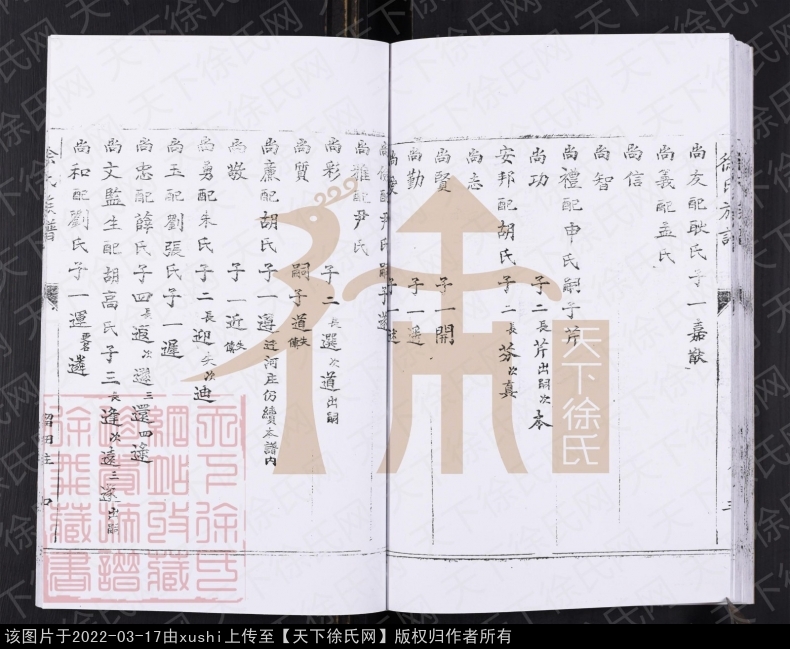 徐氏族譜
尚友配耿氏子一嘉猷
尚義配孟氏
尚信
尚智
尚禮配申氏嗣子芹
尚功 子二長芹出嗣次本
安邦配胡氏子二長芬次真
尚志
尚賢 子一開
尚勤 子一遥
尚雅配尹氏
尚彩 子二長選次道出嗣
尚質 嗣子道失傳
尚廉配胡氏子一遵迁河庄仍續本譜內
尚敬 子一近失傳
尚勇配朱氏子二長迎失次迪
尚玉配劉張氏子一遲
尚忠配薛氏子四長返次遜三還四逢
尚文監生配胡高氏子三長逢次遠三遂出嗣
尚和配劉氏子一運更名遴
徐氏族譜
天下徐氏
天下徐氏網
該图片于2022-03-17由xushi上传至【天下徐氏网】版权归作者所有